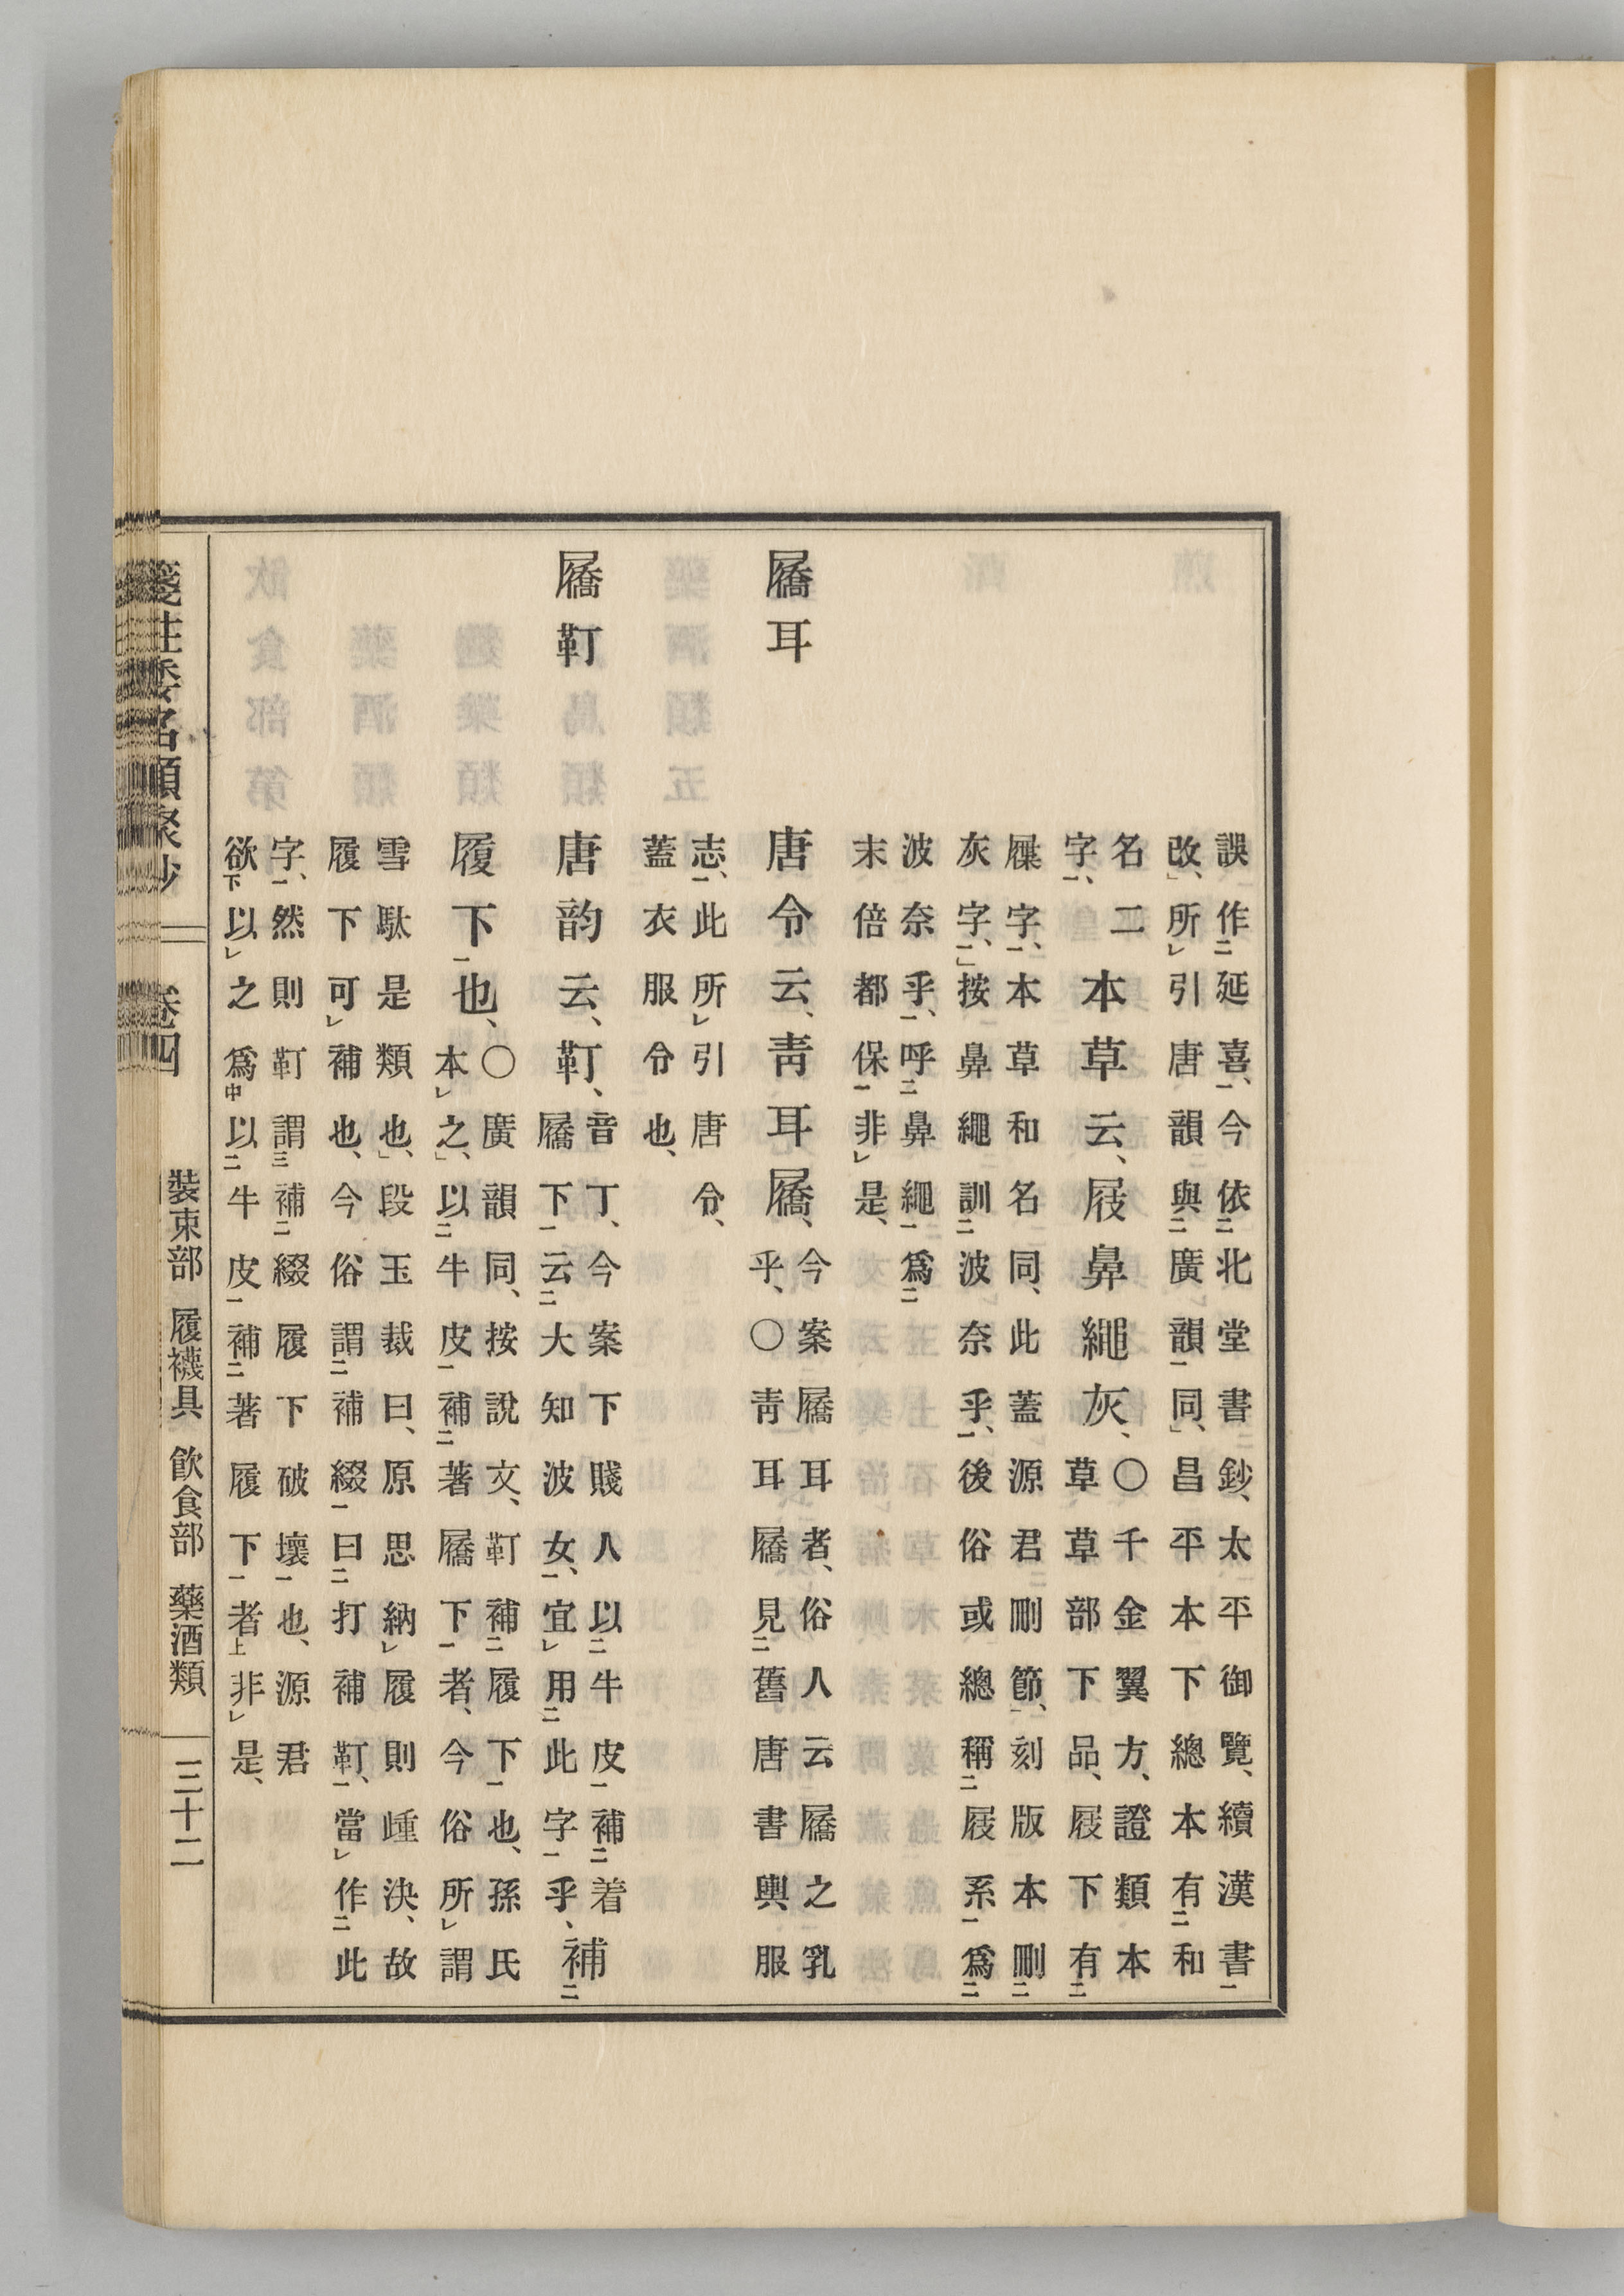 誤作延喜、今依北堂書鈔、太平御覽、續漢書
改、所引唐韻與廣韻同、昌平本下總本有和
名二
字、
本草云、屐鼻繩灰、
〇千金翼方、證類本
草草部下品、屐下有
屧字、本草和名同、此蓋源君刪節、刻版本刪
灰字、按鼻繩訓波奈乎、後俗或總稱屐系爲
波奈乎、呼鼻繩爲
末倍都保非是、
屩耳
唐令云、靑耳屩、
今案屩耳者、俗人云屩之乳
乎、〇靑耳屩見舊唐書輿服
志、此所引唐令、
蓋衣服令也、
屩靪
唐韵云、靪、
音丁、今案下賤人以牛皮補着
屩下云大知波女、宜用此字乎、
補
履下也、
〇廣韻同、按說文、靪補履下也、孫氏
本之、以牛皮補著屩下者、今俗所謂
雪駄是類也、段玉裁曰、原思納履則踵決、故
履下可補也、今俗謂補綴曰打補靪、當作此
字、然則靪謂補綴履下破壞也、源君
欲以之爲以牛皮補著履下者非是、
箋注倭名類聚抄 卷四 裝束部 履襪具 飮食部 藥酒類 三十二